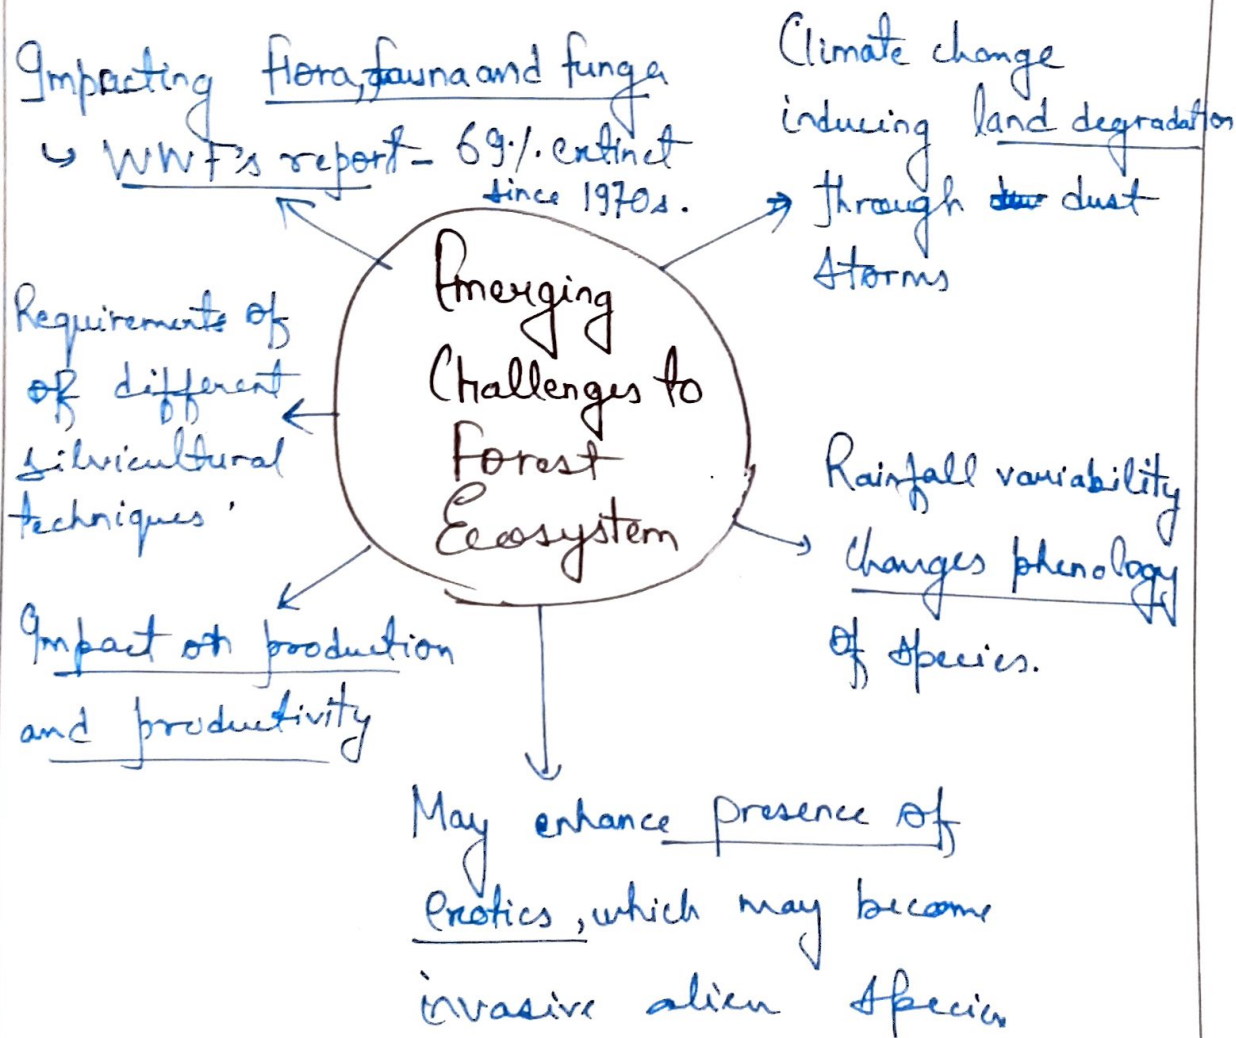 Impacting flora, fauna and funga
↳ WWF's report - 69% extinct
since 1970s.
Climate change
inducing land degradation
through dust
storms
Emerging
Challenges to
Forest
Ecosystem
Requirements of
of different
silvicultural
techniques
Rainfall variability
changes phenology
of species.
Impact on production
and productivity
May enhance presence of
exotics, which may become
invasive alien species